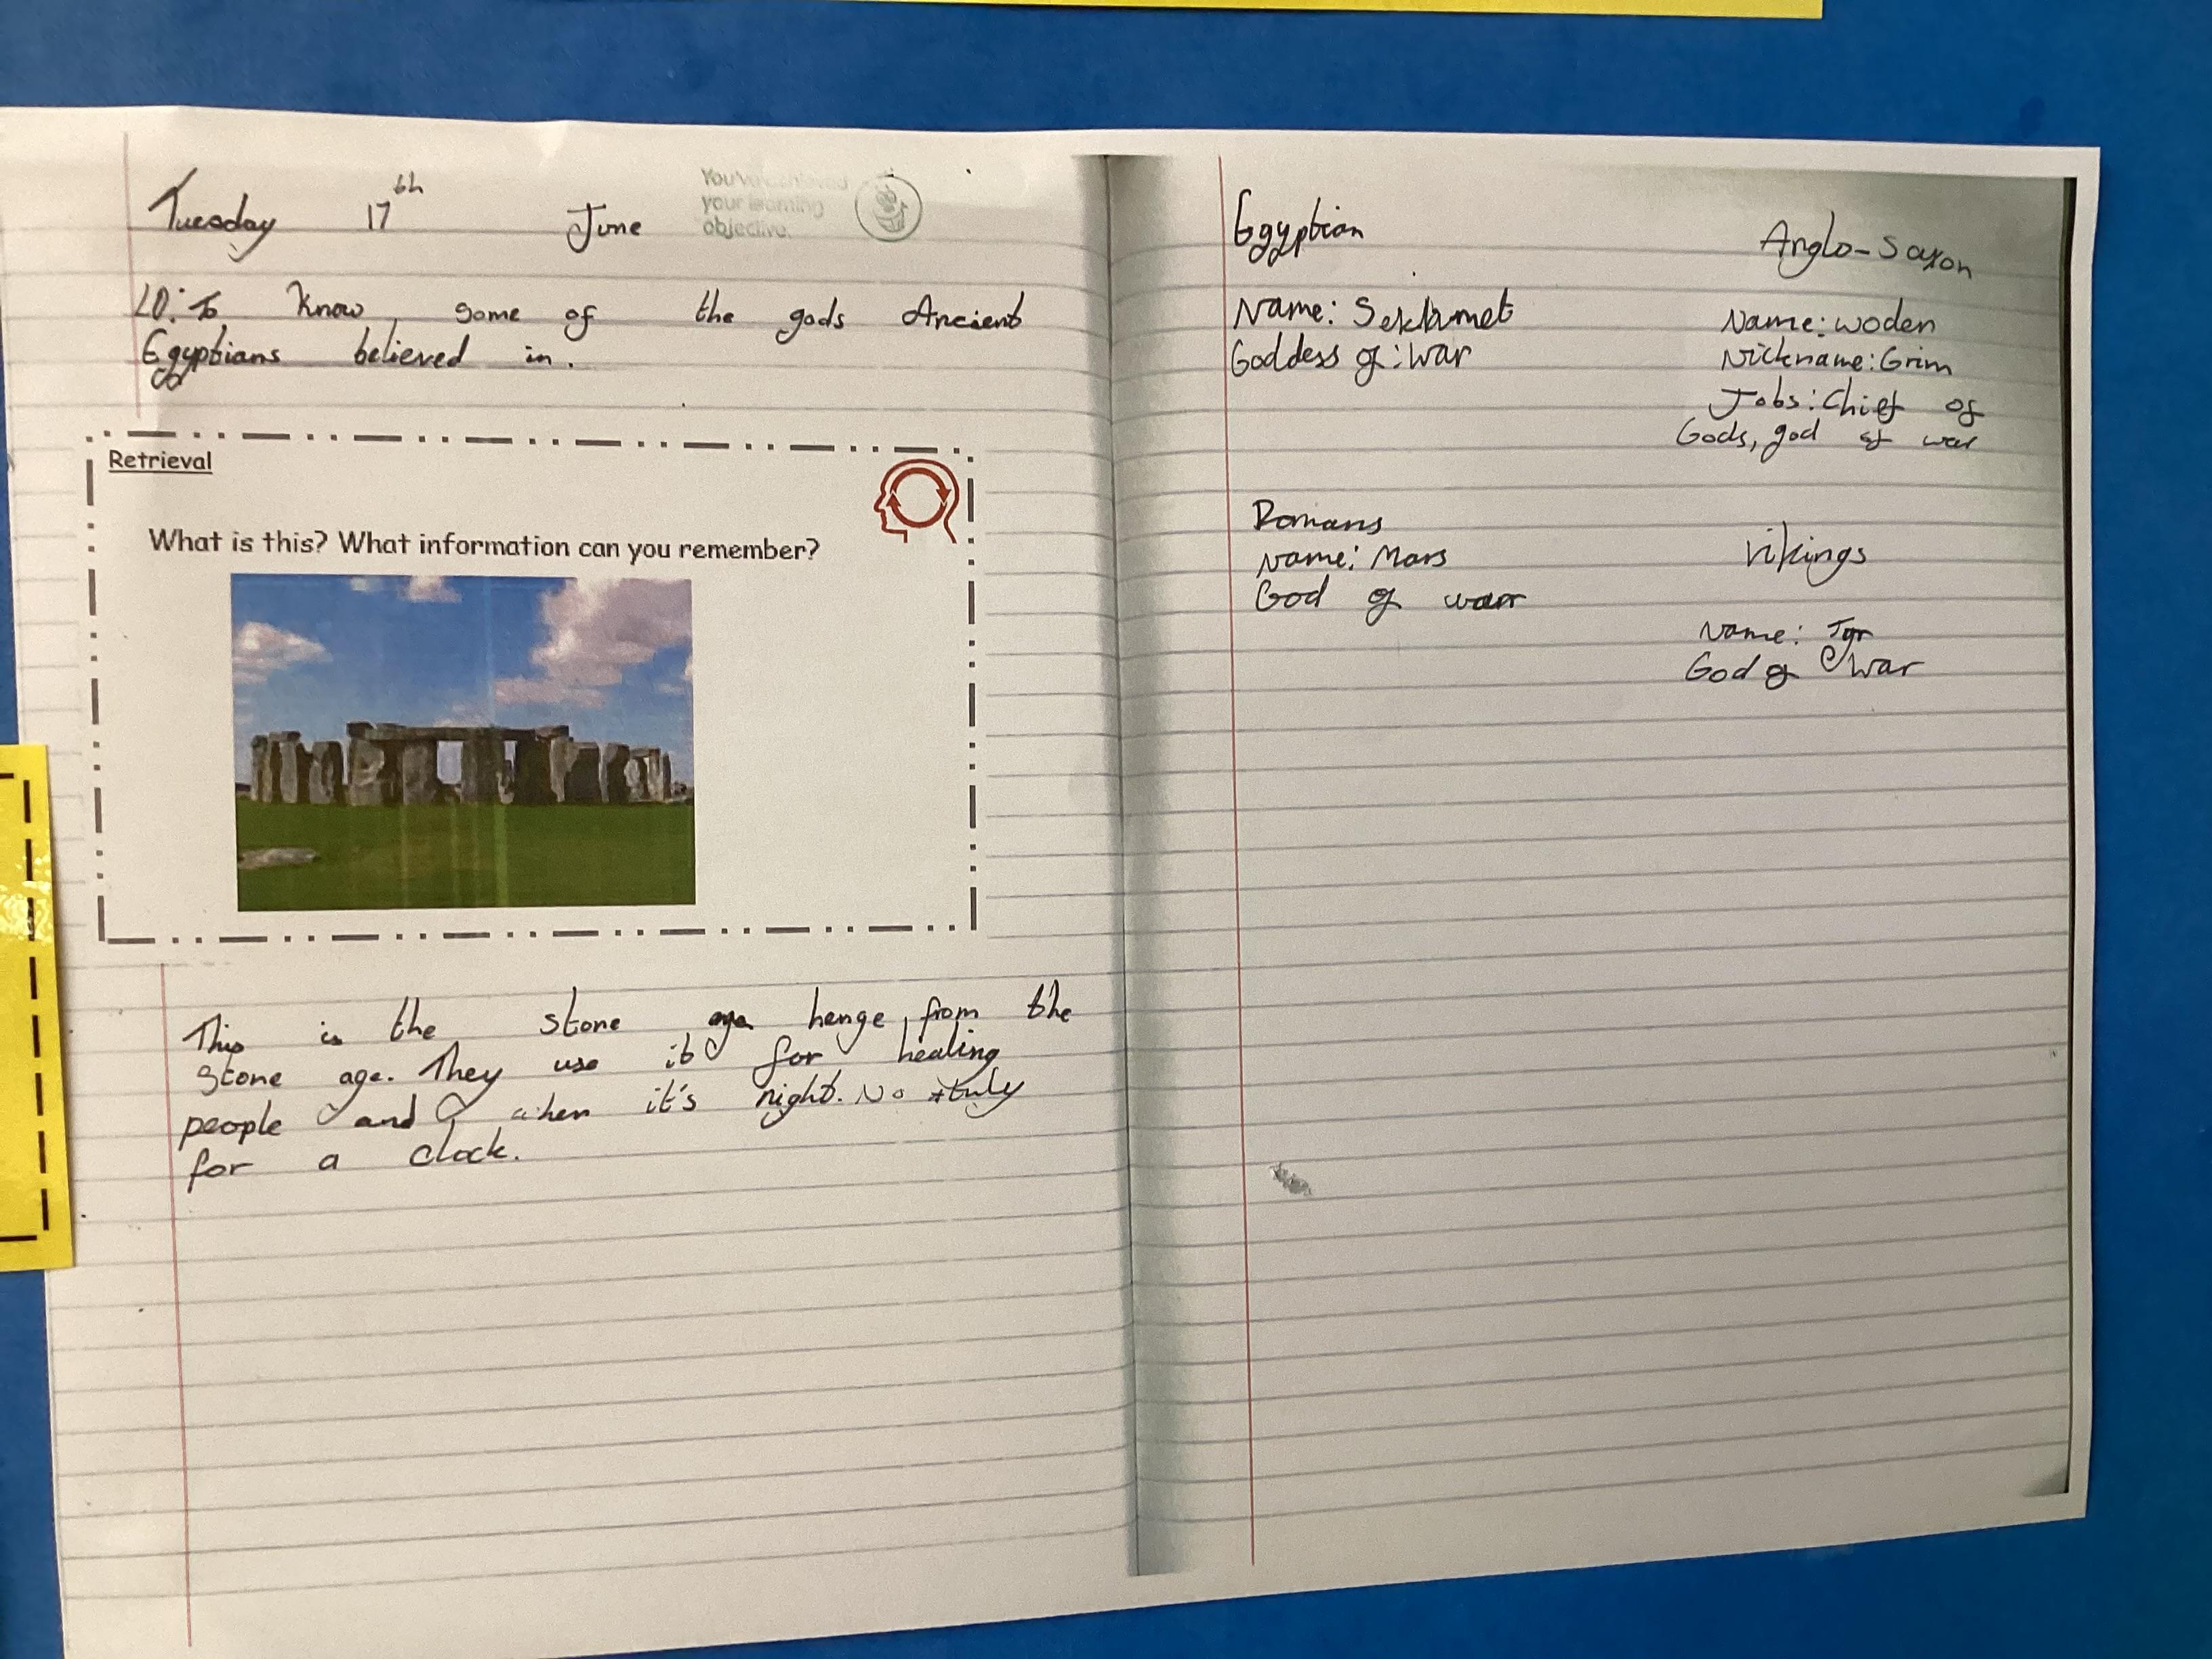 Tuesday 17th June
You've achieved
your learning
objective.
LO: To know some of the gods Ancient
Egyptians believed in.
Retrieval
What is this? What information can you remember?
This is the stone henge, from the
stone age. They use it for healing
people and when it's night. No
for a clock.
Egyptian
Name: Sekhmet
Goddess of: War
Anglo-Saxon
Name: Woden
Nickname: Grim
Jobs: Chief of
Gods, god of war
Romans
Name: Mars
God of war
Vikings
Name: Tyr
God of War